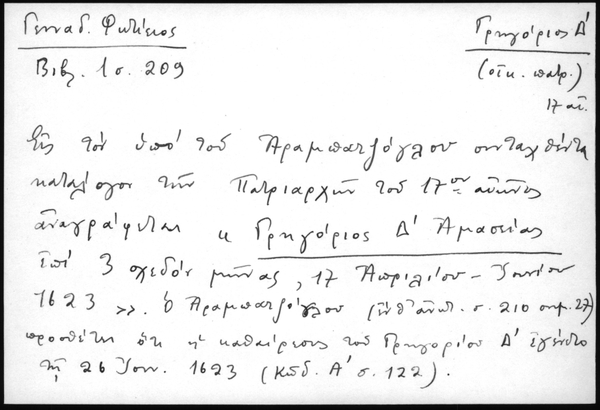 Γενναδ. Φωτίειος
Βιβλ. 1 σ. 209
Γρηγόριος Δ'
(οἰκ. πατρ.)
17 αἰ.
Εἰς τὸν ὑπὸ τοῦ Ἀραμπατζόγλου συνταχθέντα
κατάλογον τῶν Πατριαρχῶν τοῦ 17ου αἰῶνος
ἀναγράφεται « Γρηγόριος Δ' Ἀμασείας
ἐπὶ 3 σχεδὸν μῆνας, 17 Ἀπριλίου - Ἰουνίου
1623 ». Ὁ Ἀραμπατζόγλου (ἔνθ' ἀνωτ. σ. 210 σημ. 27)
προσθέτει ὅτι ἡ καθαίρεσις τοῦ Γρηγορίου Δ' ἐγένετο
τῇ 26 Ἰουν. 1623 (Κῶδ. Α' σ. 122).